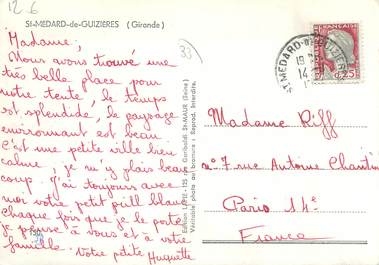 12.6
St-MEDARD-de-GUIZIÈRES (Gironde)
33
Madame,
Nous avons trouvé une
très belle place pour
notre tente, le temps
est splendide, le paysage
environnant est beau
c'est une petite ville bien
calme, je m'y plais beau
coup. J'ai toujours avec
moi votre petit pull blanc
chaque fois que je le porte
je pense à vous et à votre
famille. Votre petite Huguette
Edition LEFE - 125 rue Garibaldi St-MAUR (Seine)
Véritable photo au bromure : Reprod. Interdite.
St-MEDARD-DE-GUIZIERES
19
14
FRANÇAISE
0,25
Madame Riff
n° 7 rue Antoine Chantin
Paris 14e
France